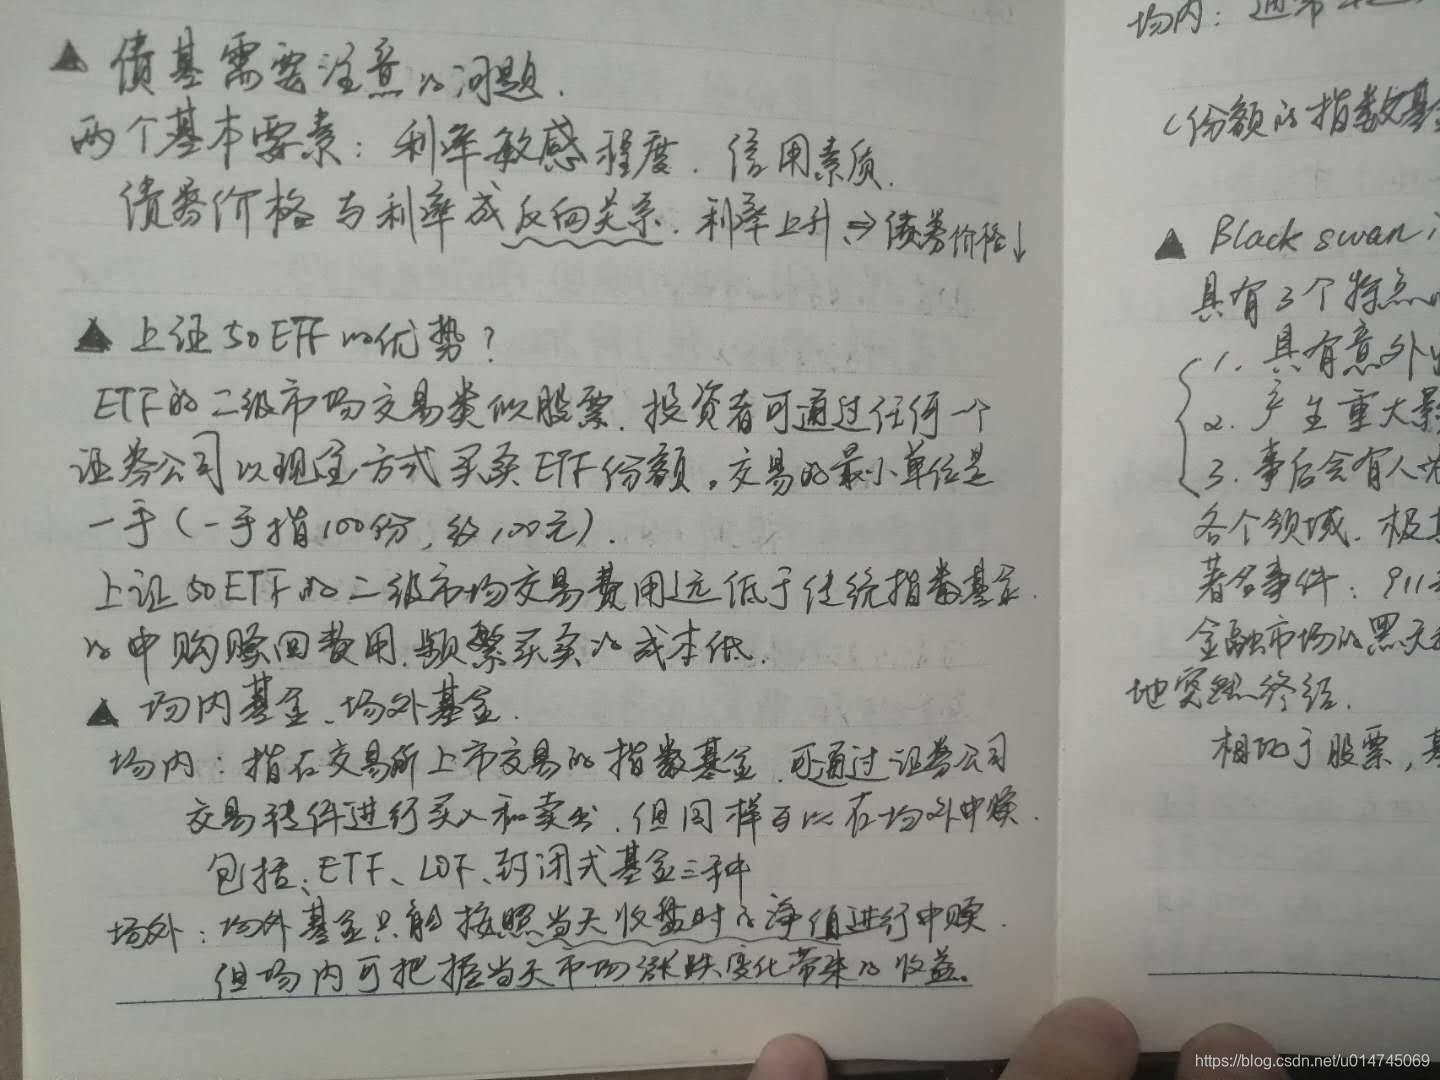 ▲ 债基需要注意的问题.
两个基本要素：利率敏感程度. 信用素质.
债券价格与利率成反向关系. 利率上升⇒债券价格↓
▲ 上证50ETF的优势？
ETF的二级市场交易类似股票. 投资者可通过任何一个
证券公司以现金方式买卖ETF份额。交易的最小单位是
一手（一手指100份，约100元）.
上证50ETF的二级市场交易费用远低于传统指数基金
的申购赎回费用. 频繁买卖的成本低.
▲ 场内基金、场外基金.
场内：指在交易所上市交易的指数基金. 可通过证券公司
交易软件进行买入和卖出. 但同样可以在场外申赎.
包括：ETF、LOF、封闭式基金三种
场外：场外基金只能按照当天收盘时的净值进行申赎.
但场内可把握当天市场涨跌变化带来的收益。
场内：通常
（份额的指数基金
▲ Black swan
具有3个特点
1. 具有意外
2. 产生重大影
3. 事后会有人
各个领域. 极其
著名事件：911
金融市场的黑天
地突然终结.
相比于股票，基
https://blog.csdn.net/u014745069